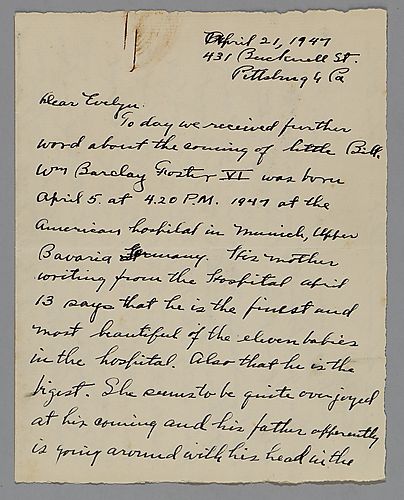 April 21, 1947
431 Bucknell St.
Pittsburg 6 Pa
Dear Evelyn.
To day we received further
word about the coming of little Bill.
Wm Barclay Foster VI was born
April 5. at 4.20 P.M. 1947 at the
American hospital in Munich, Upper
Bavaria Germany. His mother
writing from the Hospital april
13 says that he is the finest and
most beautiful of the eleven babies
in the hospital. Also that he is the
bigest. She seems to be quite overjoyed
at his coming and his father apperently
is going around with his head in the